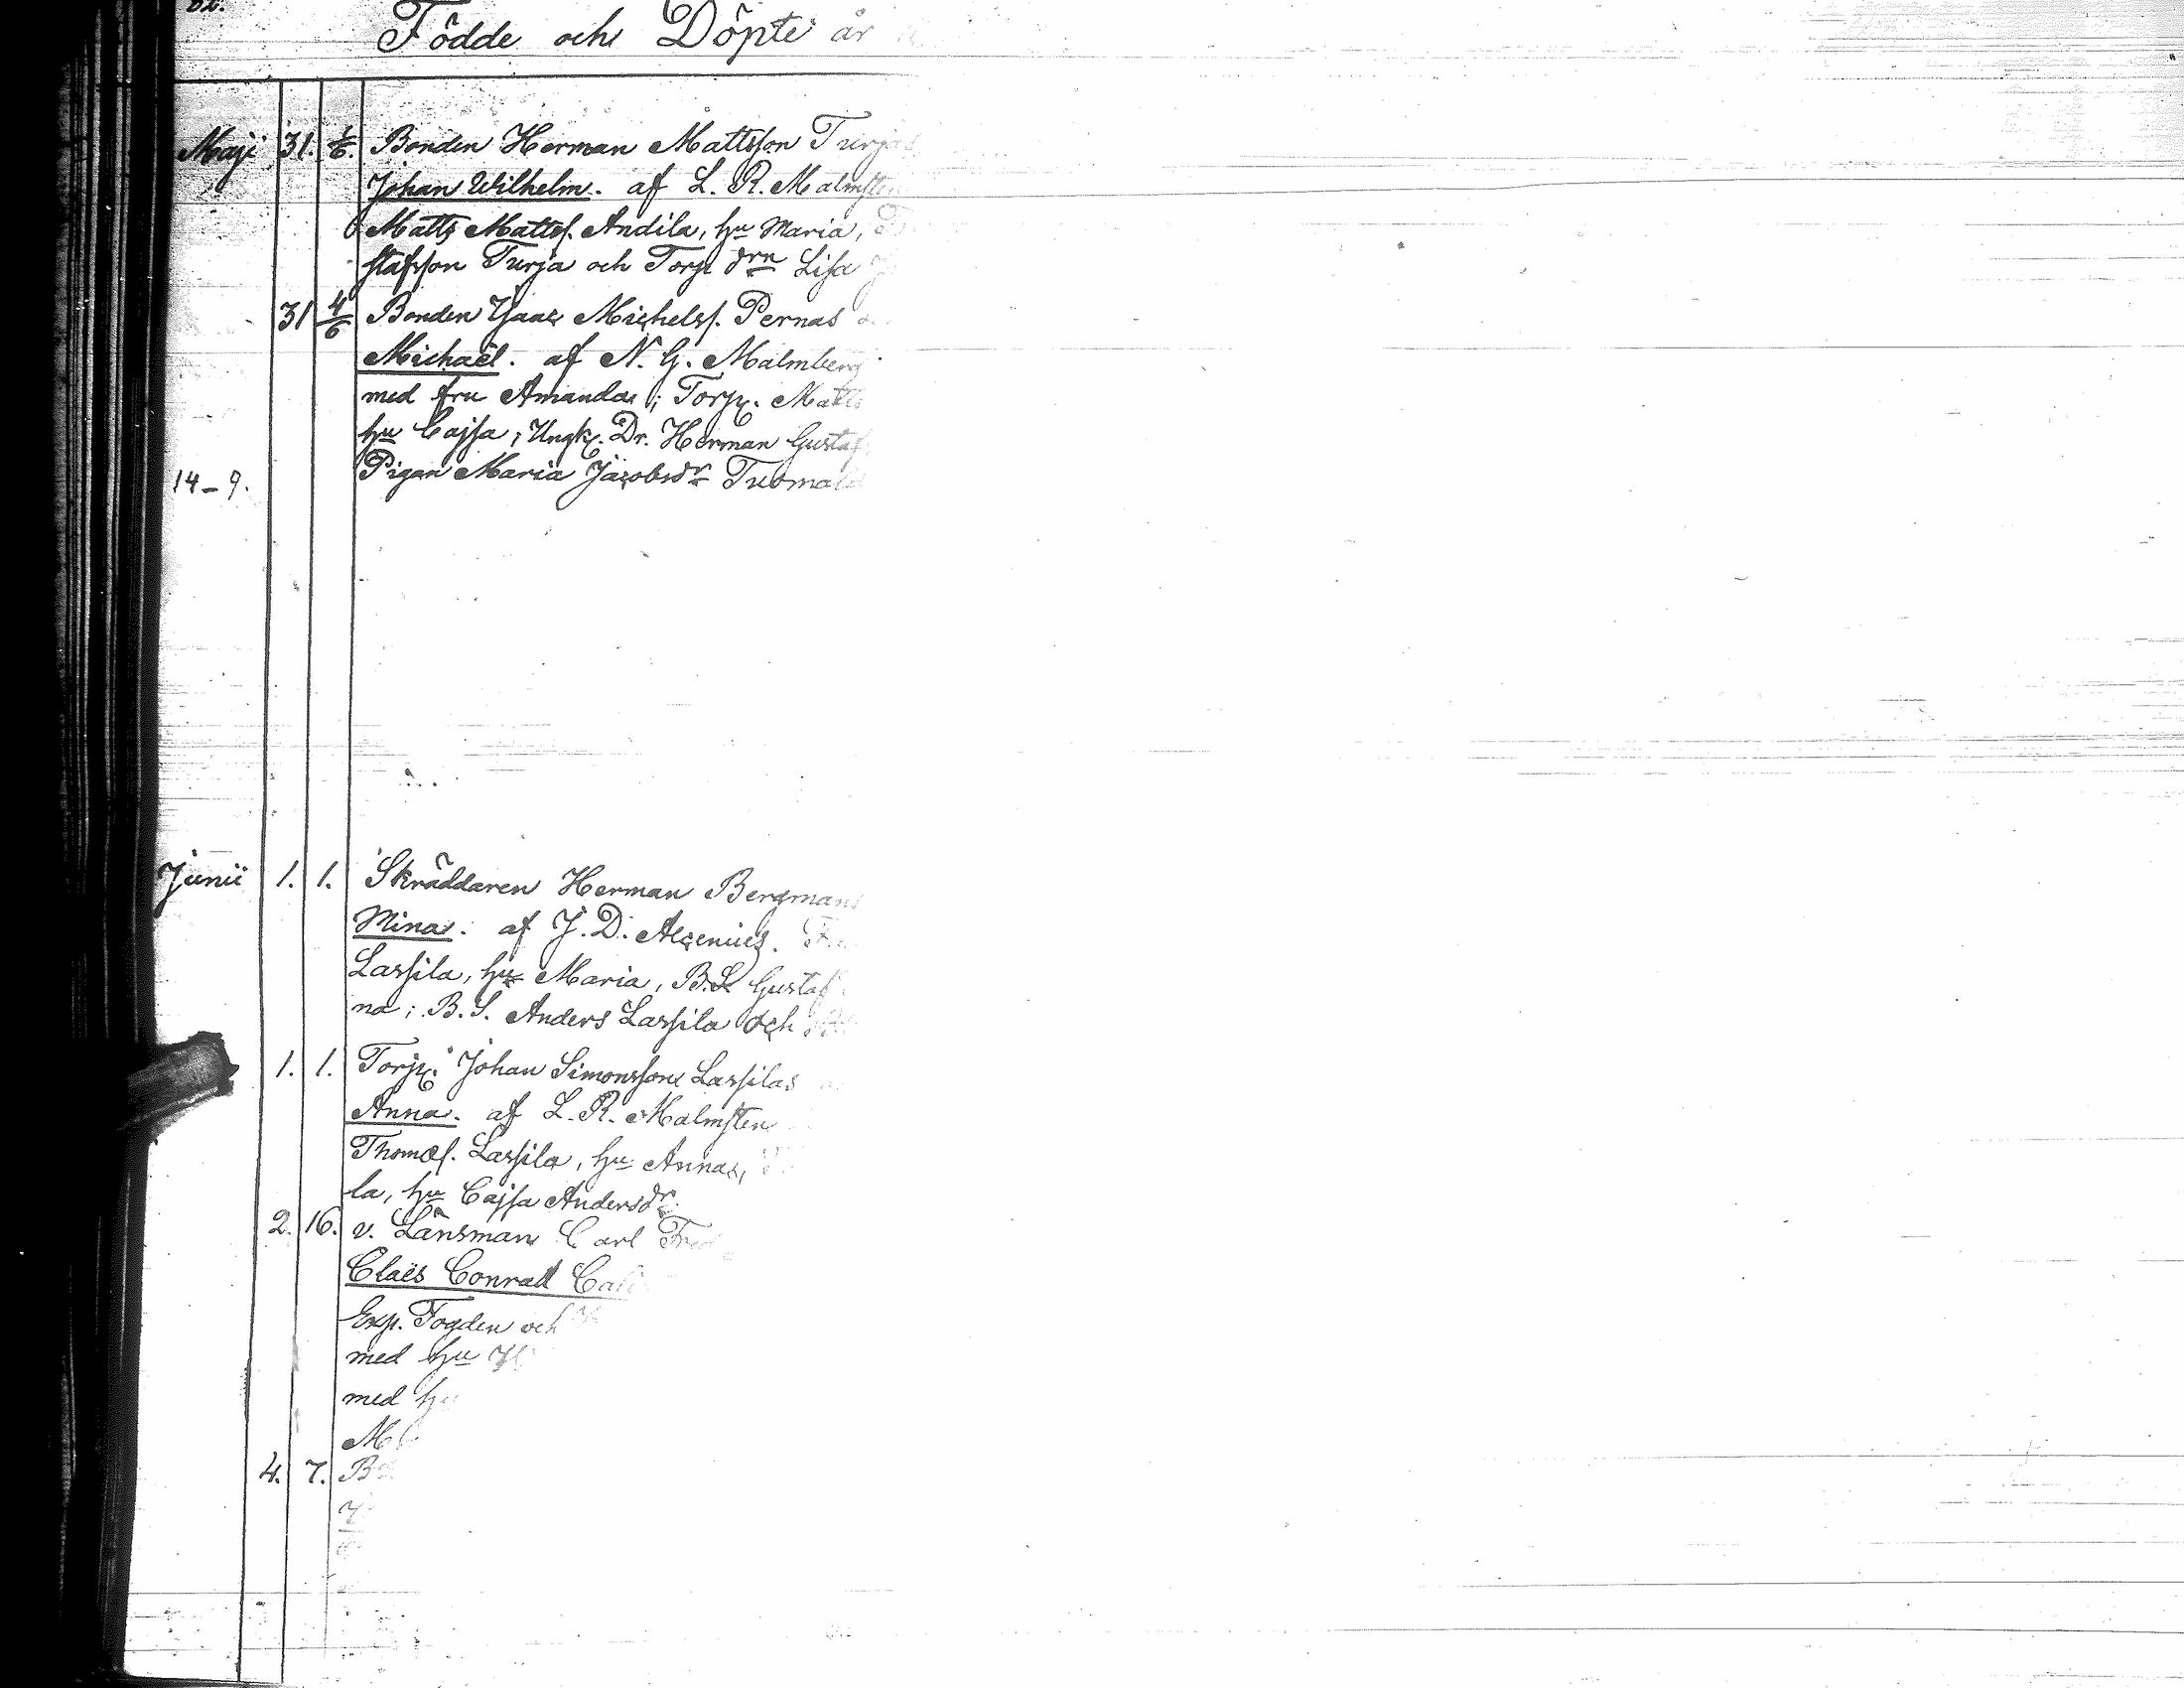 82.
Födde och Döpte år
Maji 31. 1/6. Bonden Herman Mattsson Turjas
Johan Wilhelm. af L. R. Malmsten
Matts Mattss. Andila, hu Maria,
stafsson Turja och Torp drn Lisa
31 4/6 Bonden Isaac Michelss. Pernas
Michaël. af N. G. Malmberg.
med fru Amanda; Torp. Matts
hu Cajsa; Ungk. Dr. Herman Gustaf
Pigan Maria Jacobsdr Tuomald
14-9.
Junii 1. 1. Skräddaren Herman Bergmans
Mina. af J. D. Alcenius.
Lassila, hu Maria, B.S. Gustaf
na; B.S. Anders Lassila och
1. 1. Torp. Johan Simonsson Lassilas
Anna. af L. R. Malmsten
Thomæs. Lassila, hu Anna,
la, hu Cajsa Andersdr.
2. 16. v. Länsman Carl
Claës Conrad
Exp. Fogden och
med hu
med hu
4. 7.